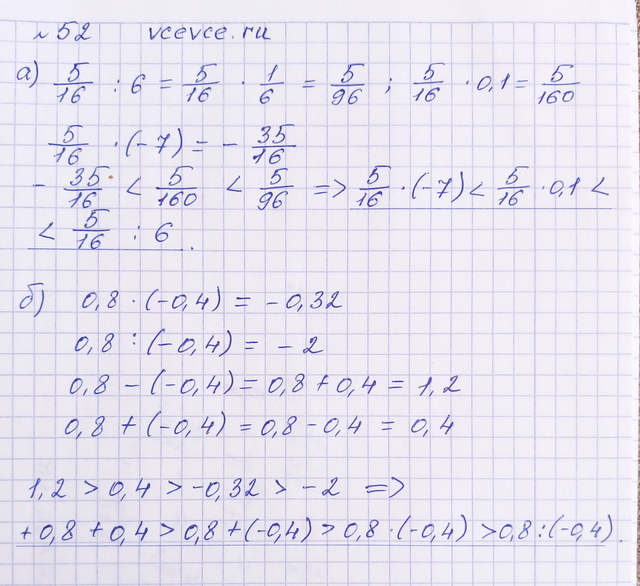 № 52 vcevce.ru
а) 5/16 : 6 = 5/16 · 1/6 = 5/96 ; 5/16 · 0,1 = 5/160
5/16 · (-7) = - 35/16
- 35/16 < 5/160 < 5/96 => 5/16 · (-7) < 5/16 · 0,1 <
< 5/16 : 6 .
б) 0,8 · (-0,4) = -0,32
0,8 : (-0,4) = -2
0,8 - (-0,4) = 0,8 + 0,4 = 1,2
0,8 + (-0,4) = 0,8 - 0,4 = 0,4
1,2 > 0,4 > -0,32 > -2 =>
+ 0,8 + 0,4 > 0,8 + (-0,4) > 0,8 · (-0,4) > 0,8 : (-0,4) .